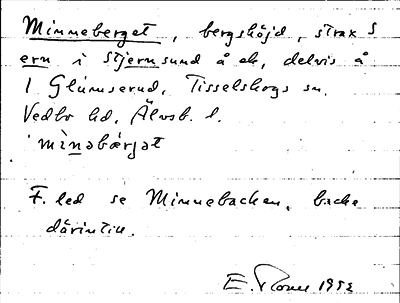 Minneberget, bergshöjd, strax S
ern i Stjernsund å ek, delvis å
1 Glumserud, Tisselskogs sn.
Vedbo hd, Älvsb. l.
mìnəbærjət
F. led se Minnebacken, backe
därintill.
E. 1952